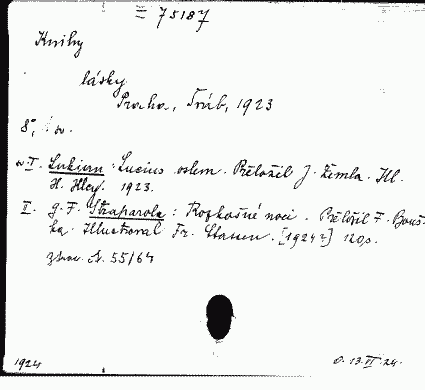 = 75187
Knihy
lásky
Praha, Tráb, 1923
8°, sv.
I. Lukian: Lucius oslem. Přeložil J. Žemla. Ill.
H. Hley. 1923.
II. G. F. Straparola: Rozkošné noci. Přeložil F. Bouš-
ka. Illustroval Fr. Stassen. [1924?] 120 s.
1924